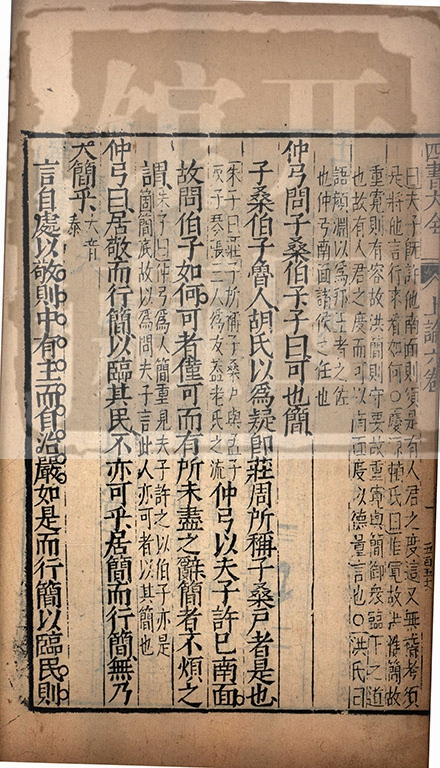 四書大全 上論六卷 一
曰夫子既許他南面則須是有人君之度這又無稽考須
是將他言行來看如何○慶源輔氏曰惟寬故洪惟簡故
重寬則有容故洪簡則守要故重寬與簡御衆臨下之道
也故有人君之度而可以南面度以德量言也○洪氏曰
語顏淵以爲邦王者之佐
也仲弓南面諸侯之任也
仲弓問子桑伯子子曰可也簡
子桑伯子魯人胡氏以爲疑卽莊周所稱子桑戶者是也
朱子曰莊子所稱子桑戶與孟子
反子琴張三人爲友蓋老氏之流
仲弓以夫子許已南面
故問伯子如何可者僅可而有所未盡之辭簡者不煩之
謂
朱子曰仲弓爲人簡重見夫子許之以伯子亦是
箇簡底故以爲問夫子言此人亦可者以其簡也
仲弓曰居敬而行簡以臨其民不亦可乎居簡而行簡無乃
大簡乎大音泰
言自處以敬則中有主而自治嚴如是而行簡以臨民則